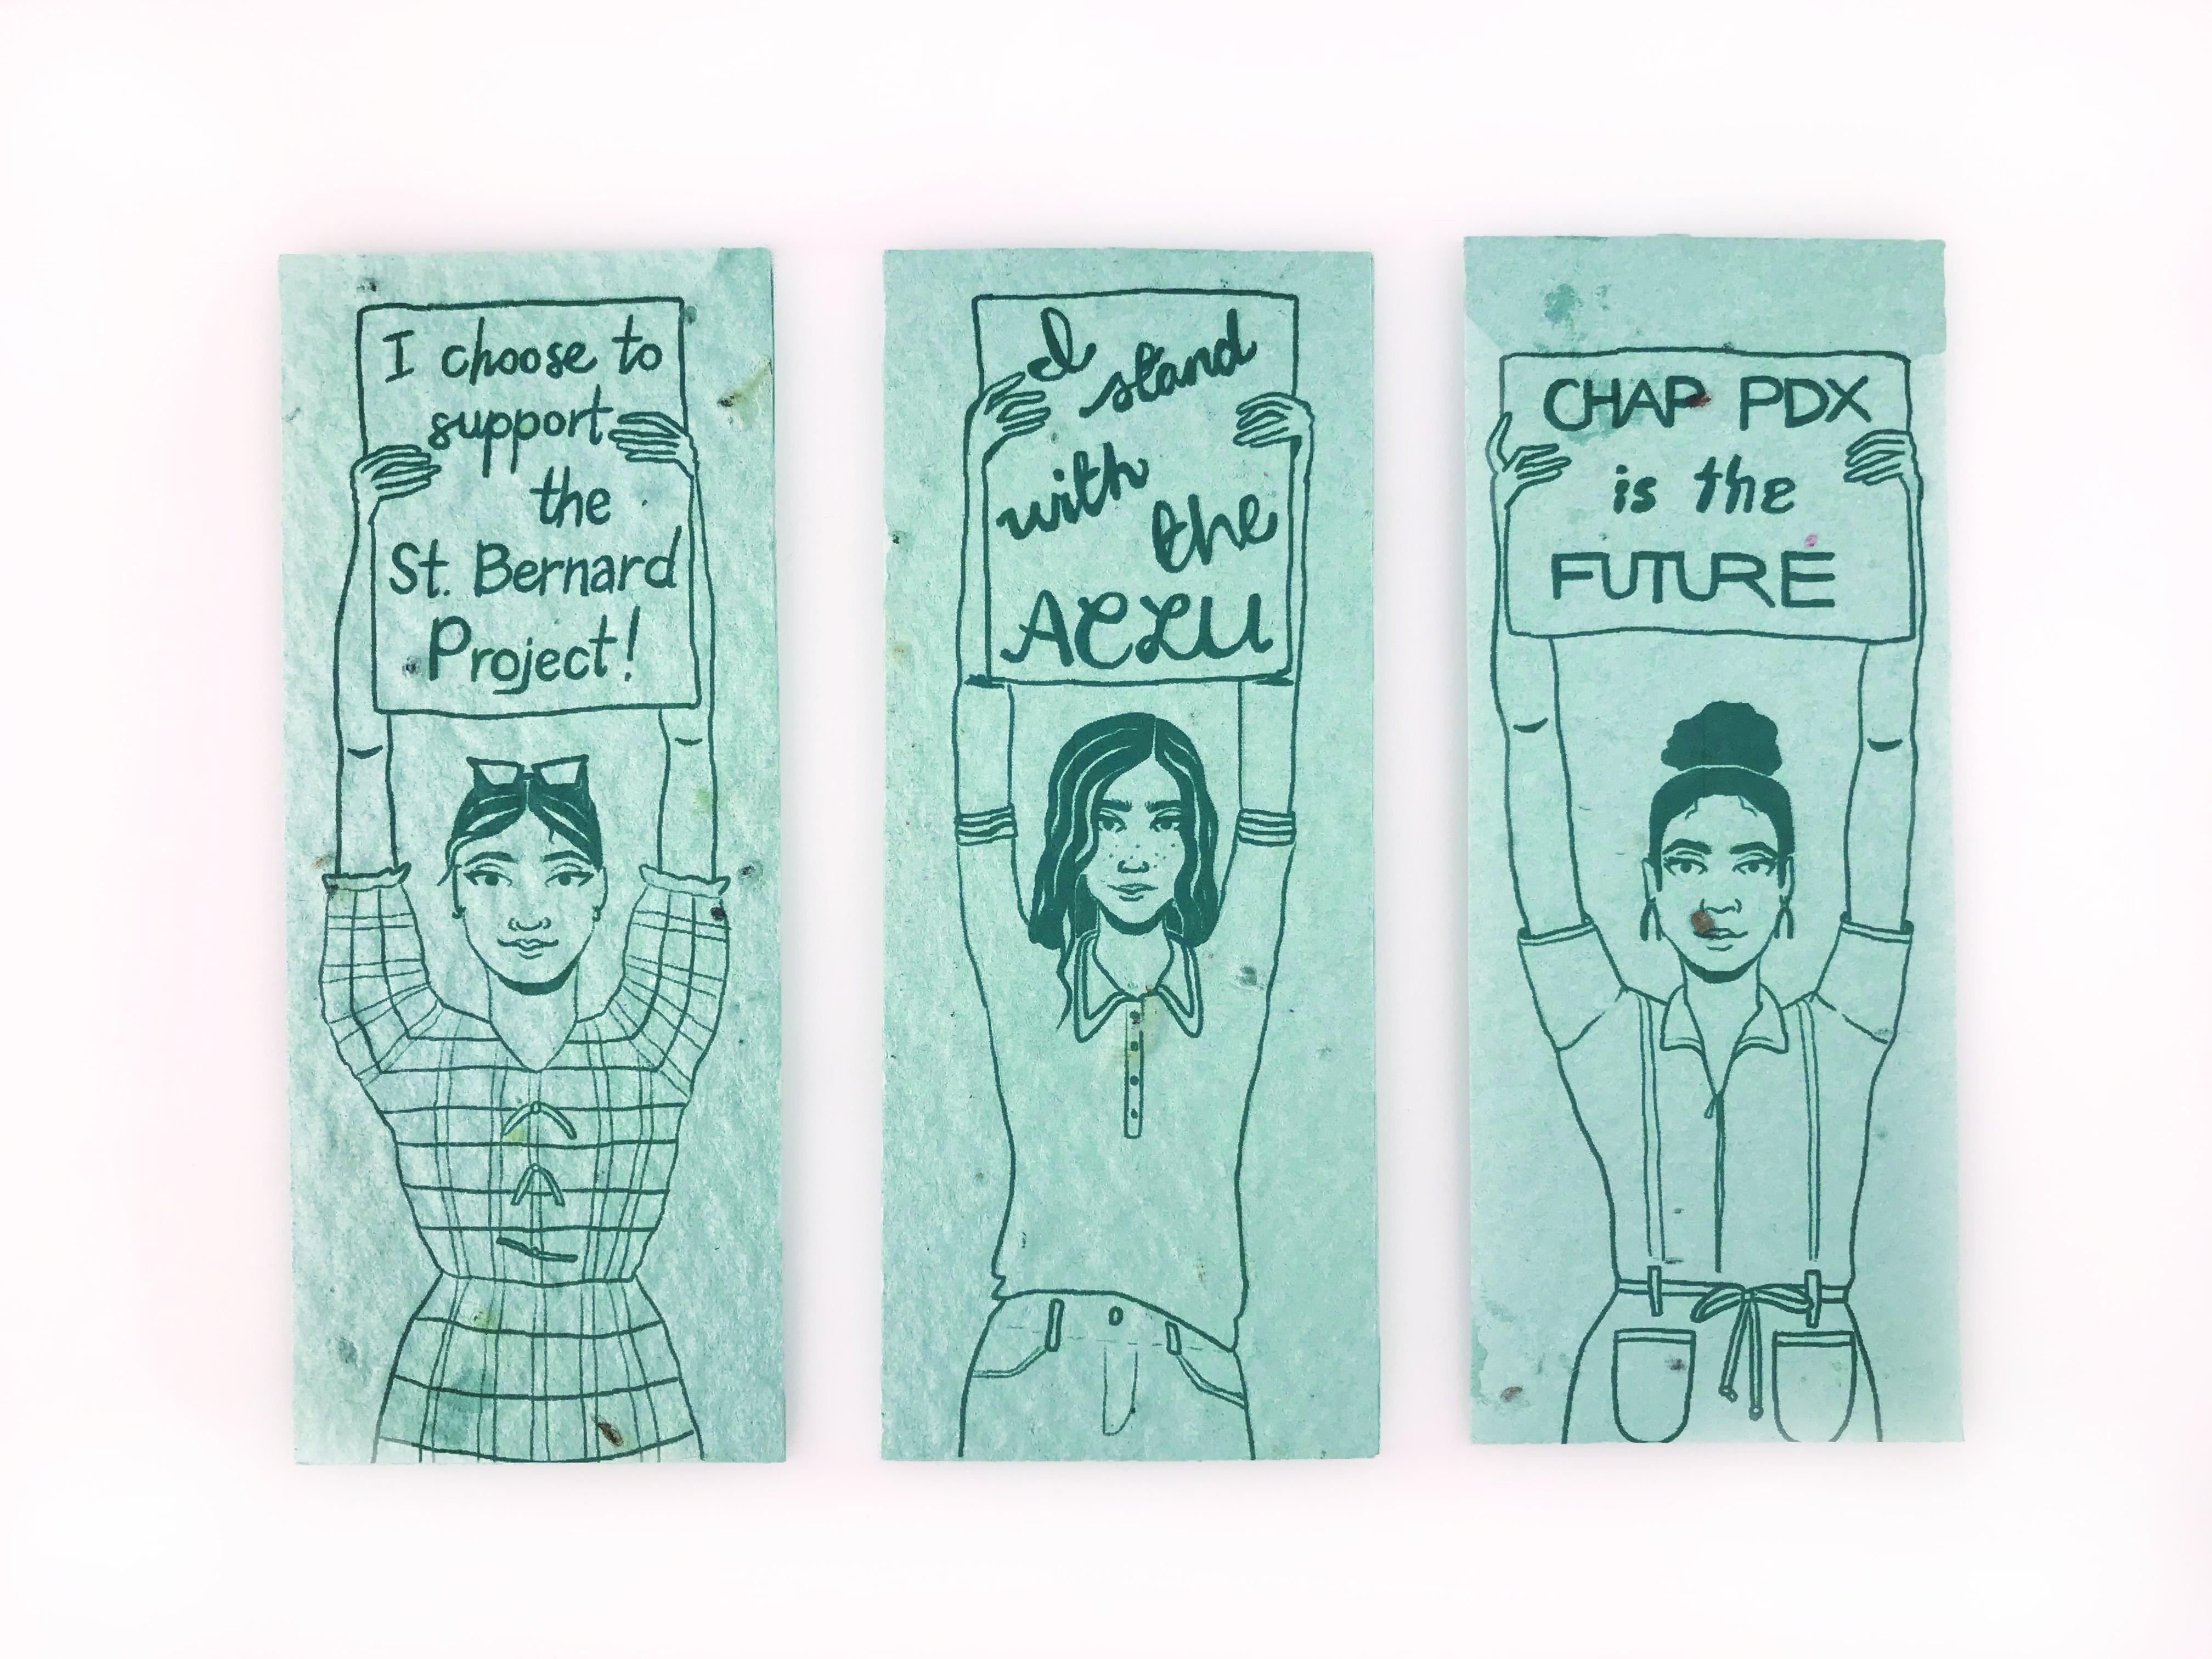 I choose to
support
the
St. Bernard
Project!
I stand
with the
ACLU
CHAP PDX
is the
FUTURE